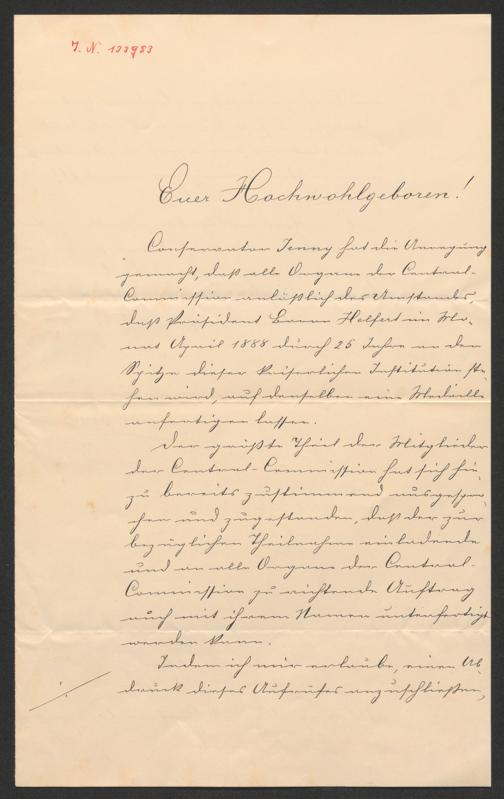 J. N. 133983
Euer Hochwohlgeboren!
Conservator Jenny hat die Anregung
gemacht, daß alle Organe der Central-
Commission anläßlich des Umstandes,
daß Präsident Baron Helfert im Mo-
nat April 1888 durch 25 Jahre an der
Spitze dieser kaiserlichen Institution ste-
hen wird, auf denselben eine Medaille
anfertigen lassen.
Der größte Theil der Mitglieder
der Central-Commission hat sich hie-
zu bereits zustimmend ausgespro-
chen und zugestanden, daß der zur
bezüglichen Theilnahme einladende
und an alle Organe der Central-
Commission zu richtende Aufruf
auch mit ihrem Namen unterfertigt
werden kann.
Indem ich mir erlaube, einen Ab-
druck dieses Aufrufes anzuschließen,